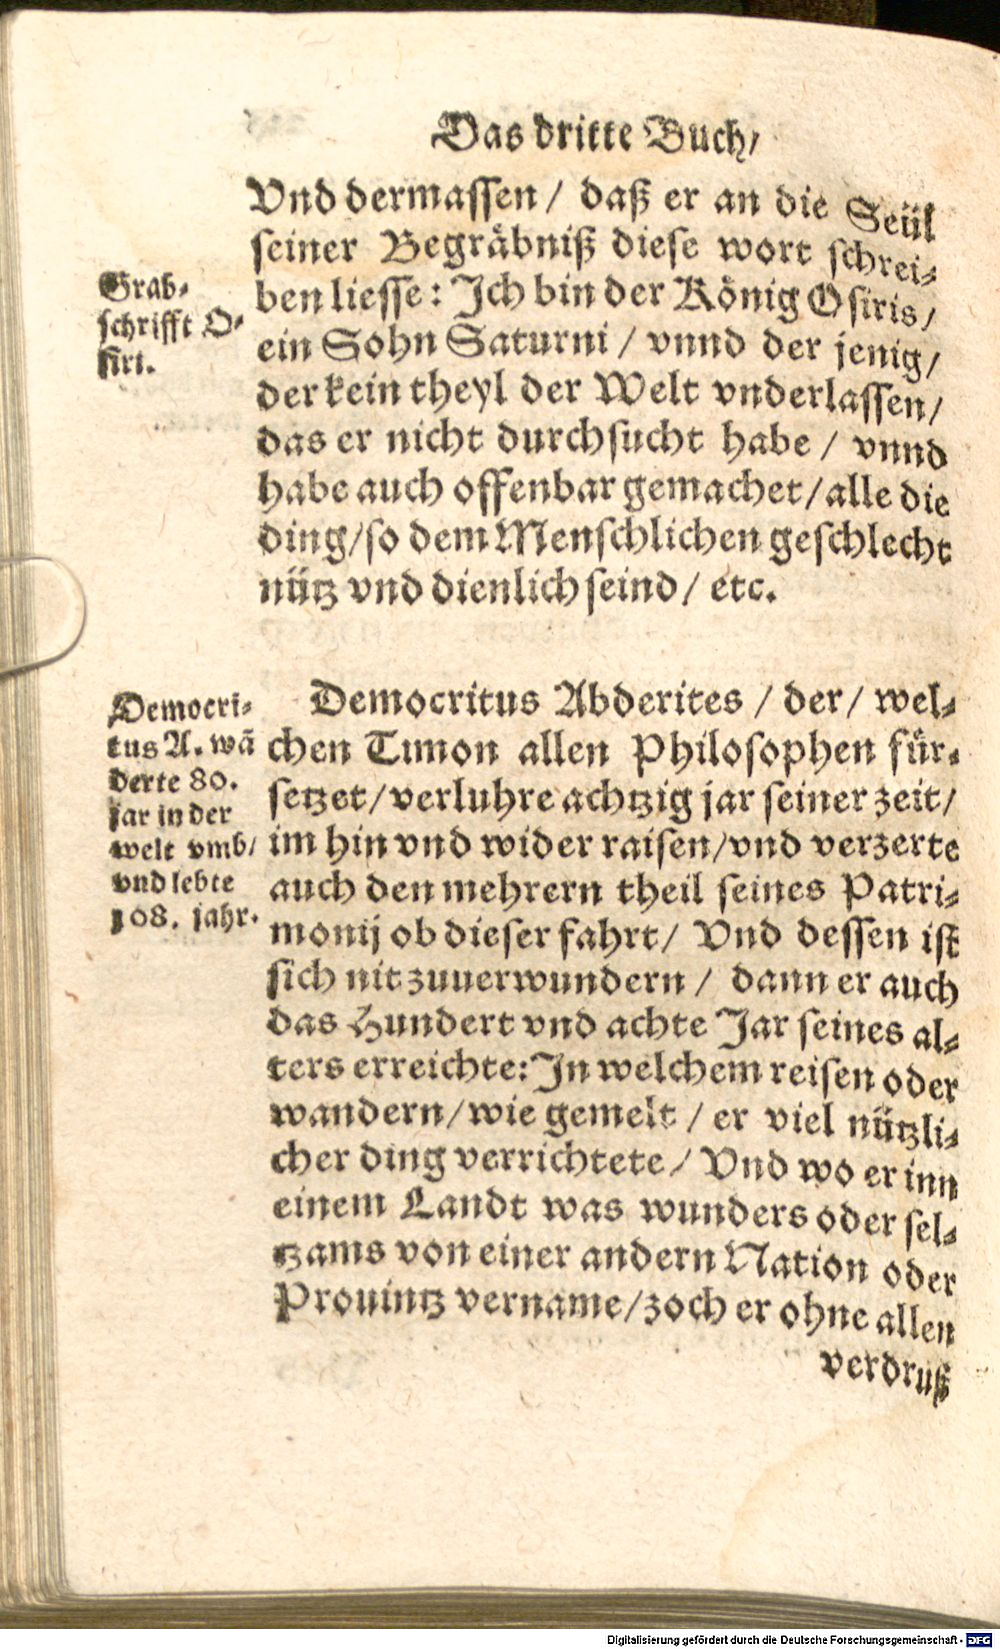 Das dritte Buch/
Vnd dermassen / daß er an die Seül
seiner Begräbniß diese wort schrei-
ben liesse: Ich bin der König Osiris/
ein Sohn Saturni / vnnd der jenig/
der kein theyl der Welt vnderlassen/
das er nicht durchsucht habe / vnnd
habe auch offenbar gemachet/alle die
ding/so dem Menschlichen geschlecht
nütz vnd dienlich seind/ etc.
Grab-
schrifft O-
siri.
Democritus Abderites / der/ wel-
chen Timon allen Philosophen für-
setzet/verluhre achtzig jar seiner zeit/
im hin vnd wider raisen/vnd verzerte
auch den mehrern theil seines Patri-
monij ob dieser fahrt/ Vnd dessen ist
sich nit zuuerwundern / dann er auch
das Hundert vnd achte Jar seines al-
ters erreichte: In welchem reisen oder
wandern/wie gemelt / er viel nützli-
cher ding verrichtete/ Vnd wo er inn
einem Landt was wunders oder sel-
tzams von einer andern Nation oder
Prouintz vername/zoch er ohne allen
verdruß
Democri-
tus A. wā
derte 80.
jar in der
welt vmb/
vnd lebte
108. jahr.
Digitalisierung gefördert durch die Deutsche Forschungsgemeinschaft - DFG